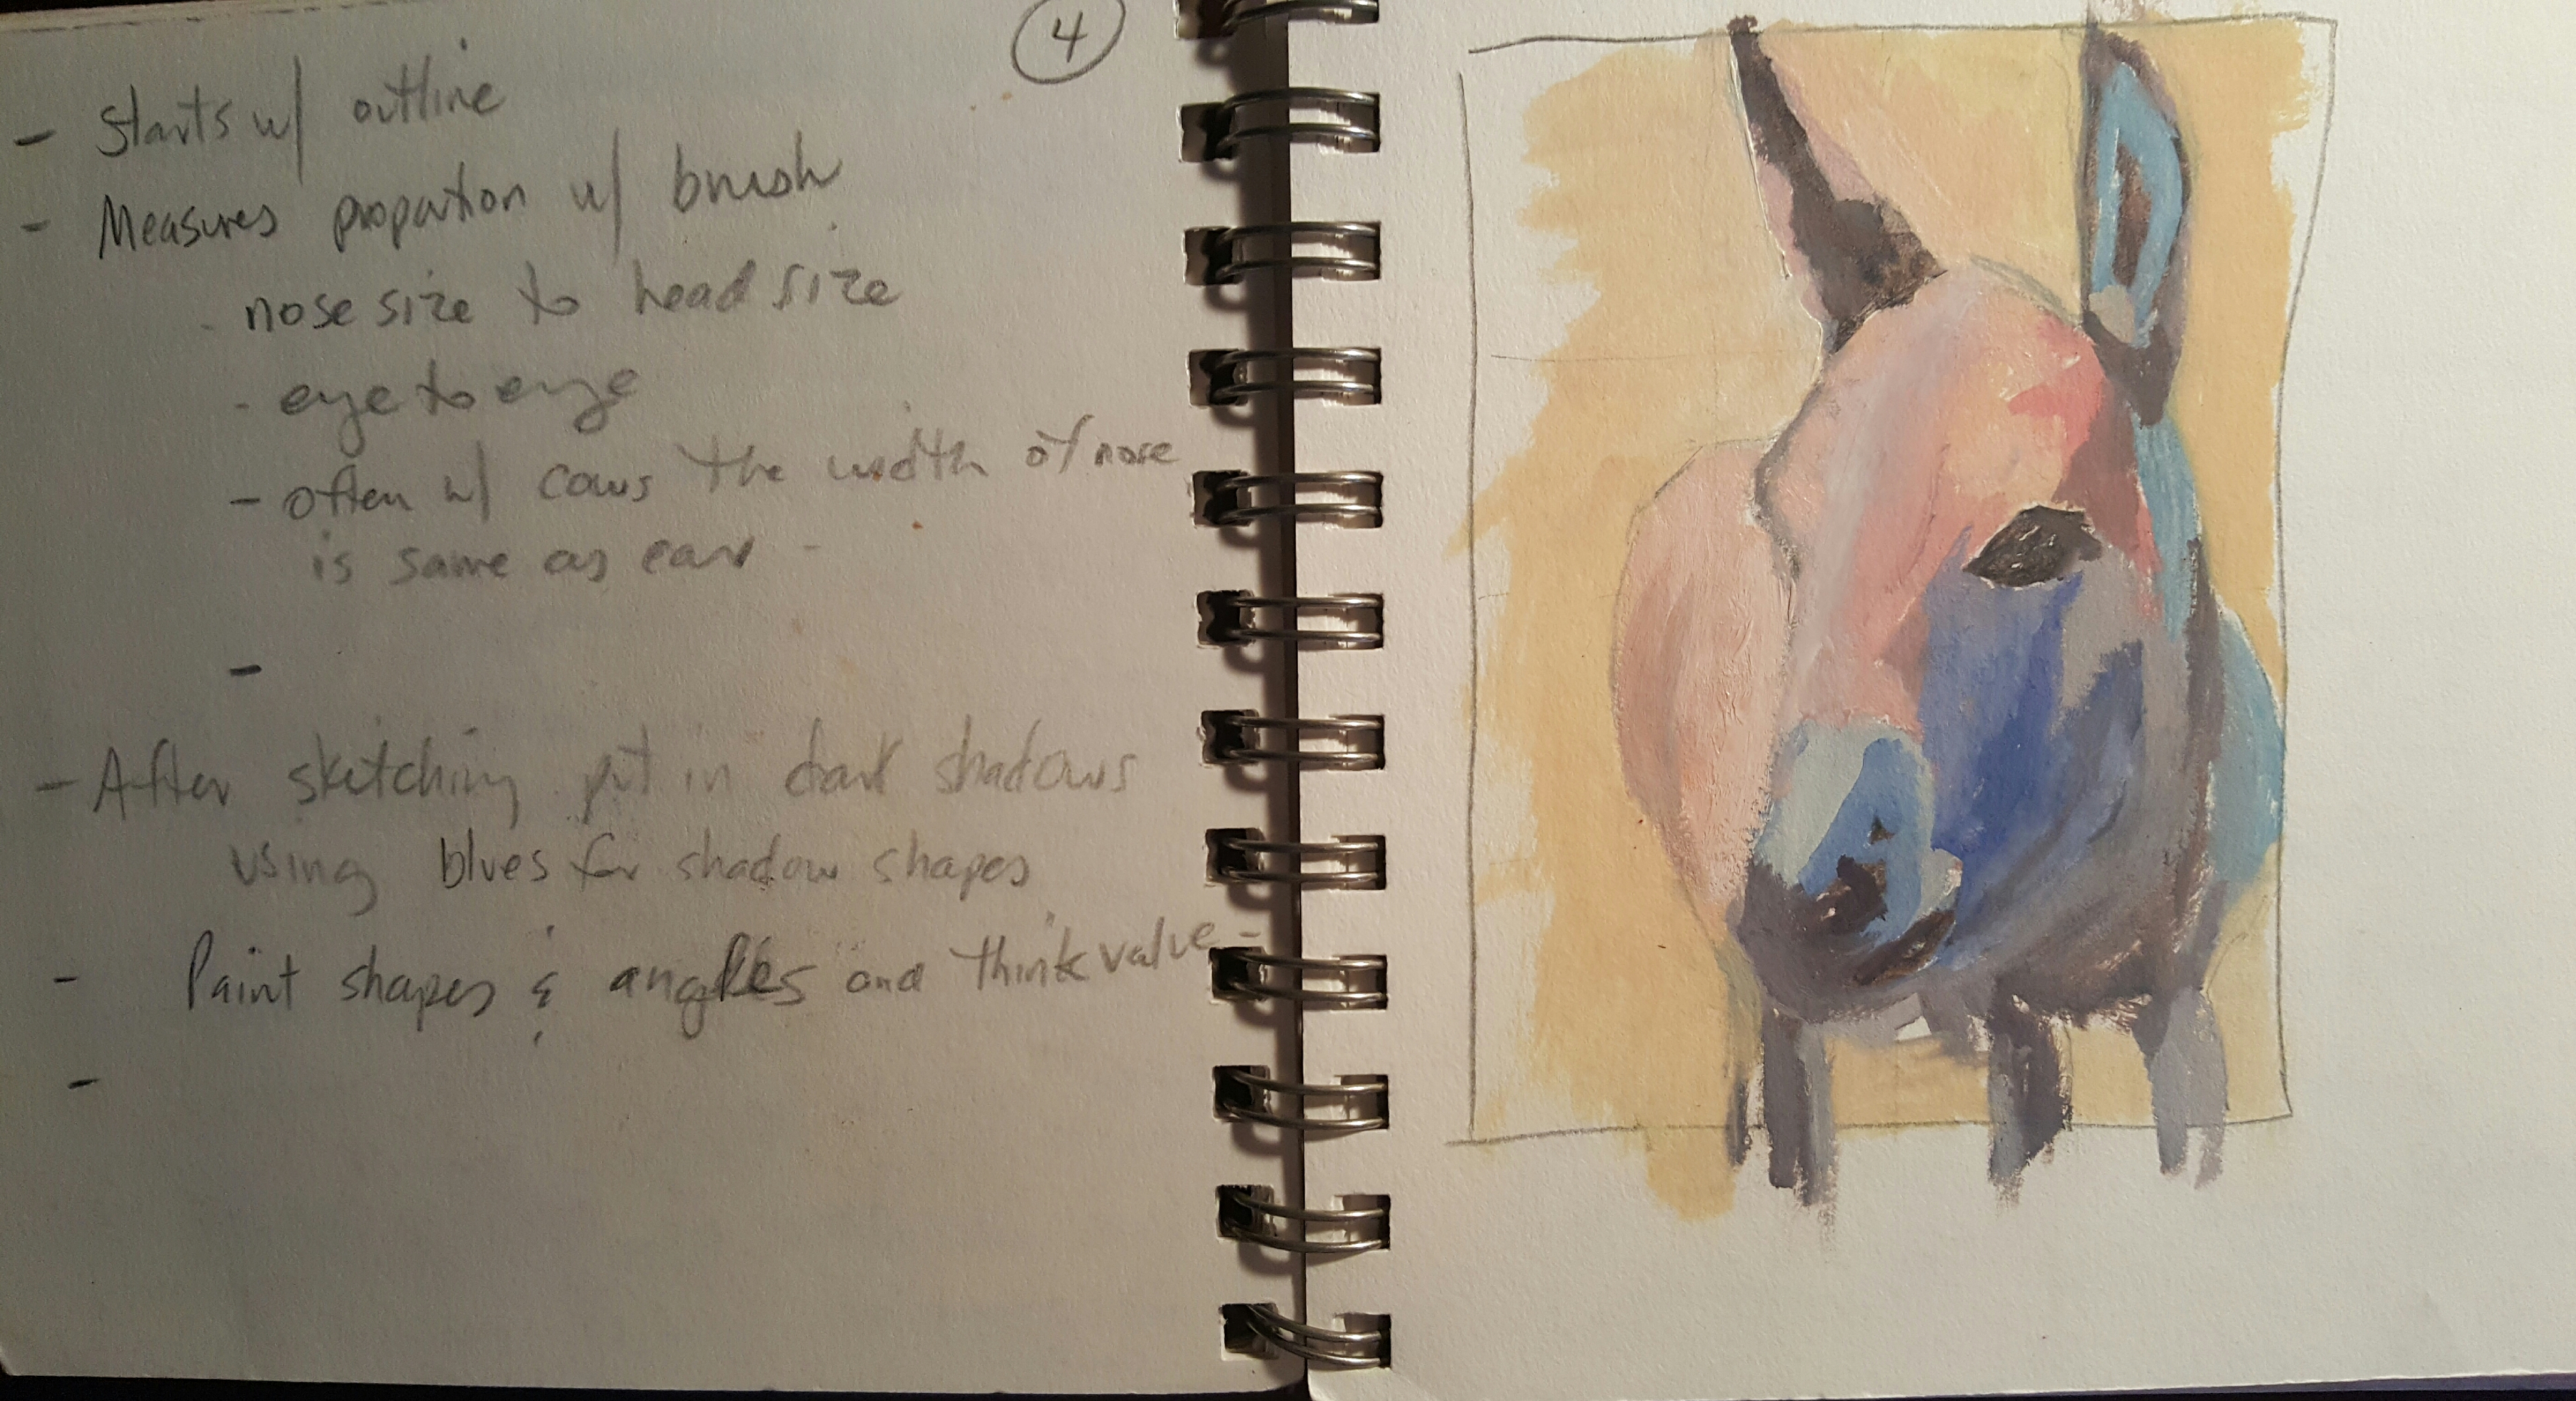 4
- Starts w/ outline
- Measures proportion w/ brush
- nose size to head size
- eye to eye
- often w/ cows the width of nose
is same as ear -
-
- After sketching put in dark shadows
using blues for shadow shapes
- Paint shapes & angles and think value -
-